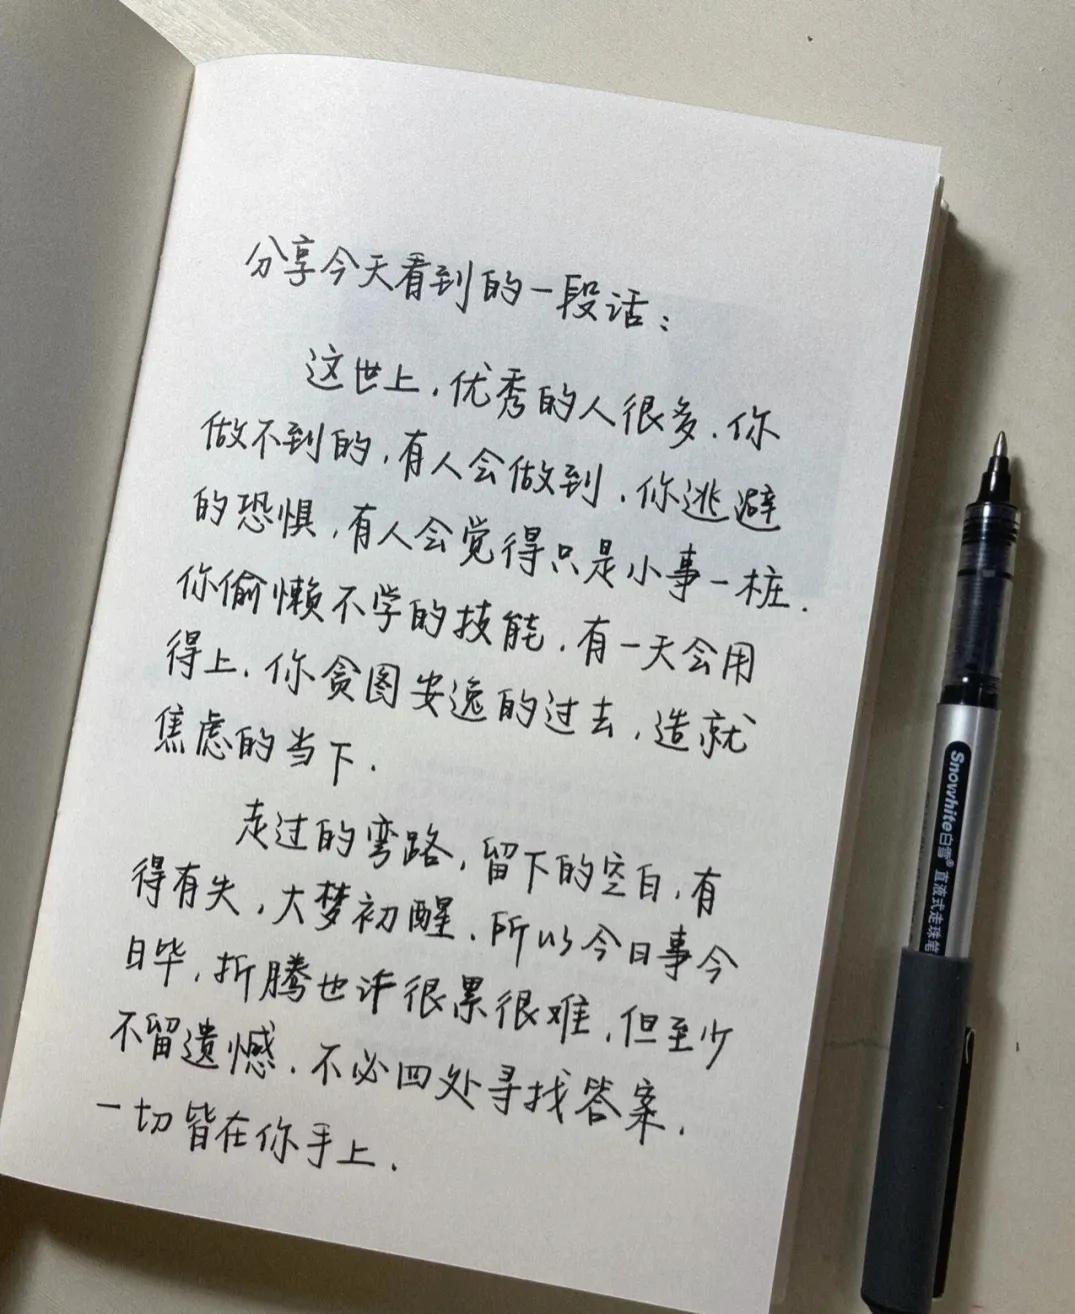 分享今天看到的一段话：
这世上.优秀的人很多.你
做不到的,有人会做到.你逃避
的恐惧,有人会觉得只是小事一桩.
你偷懒不学的技能.有一天会用
得上.你贪图安逸的过去,造就
焦虑的当下.
走过的弯路,留下的空白,有
得有失,大梦初醒.所以今日事今
日毕,折腾也许很累很难,但至少
不留遗憾.不必四处寻找答案.
一切皆在你手上.
Snowhite白雪® 直液式走珠笔